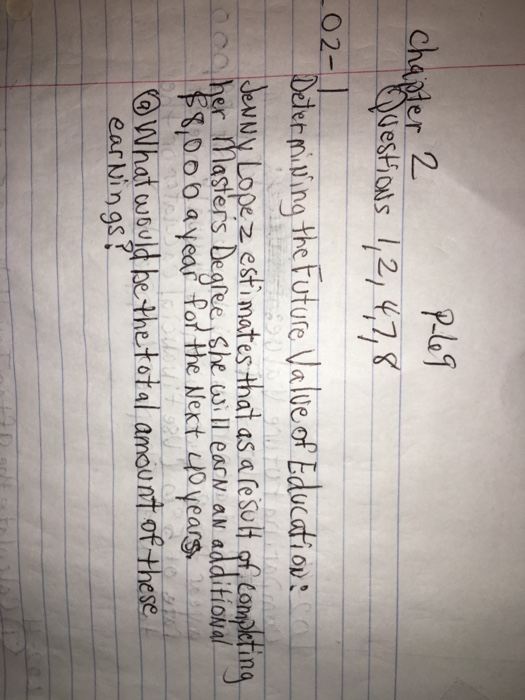 Chapter 2 P-69
Questions 1, 2, 4, 7, 8
02-1
Determining the Future Value of Education:
Jenny Lopez estimates that as a result of completing
her Master's Degree, she will earn an additional
$8,000 a year for the Next 40 years.
ⓐ What would be the total amount of these
earnings?